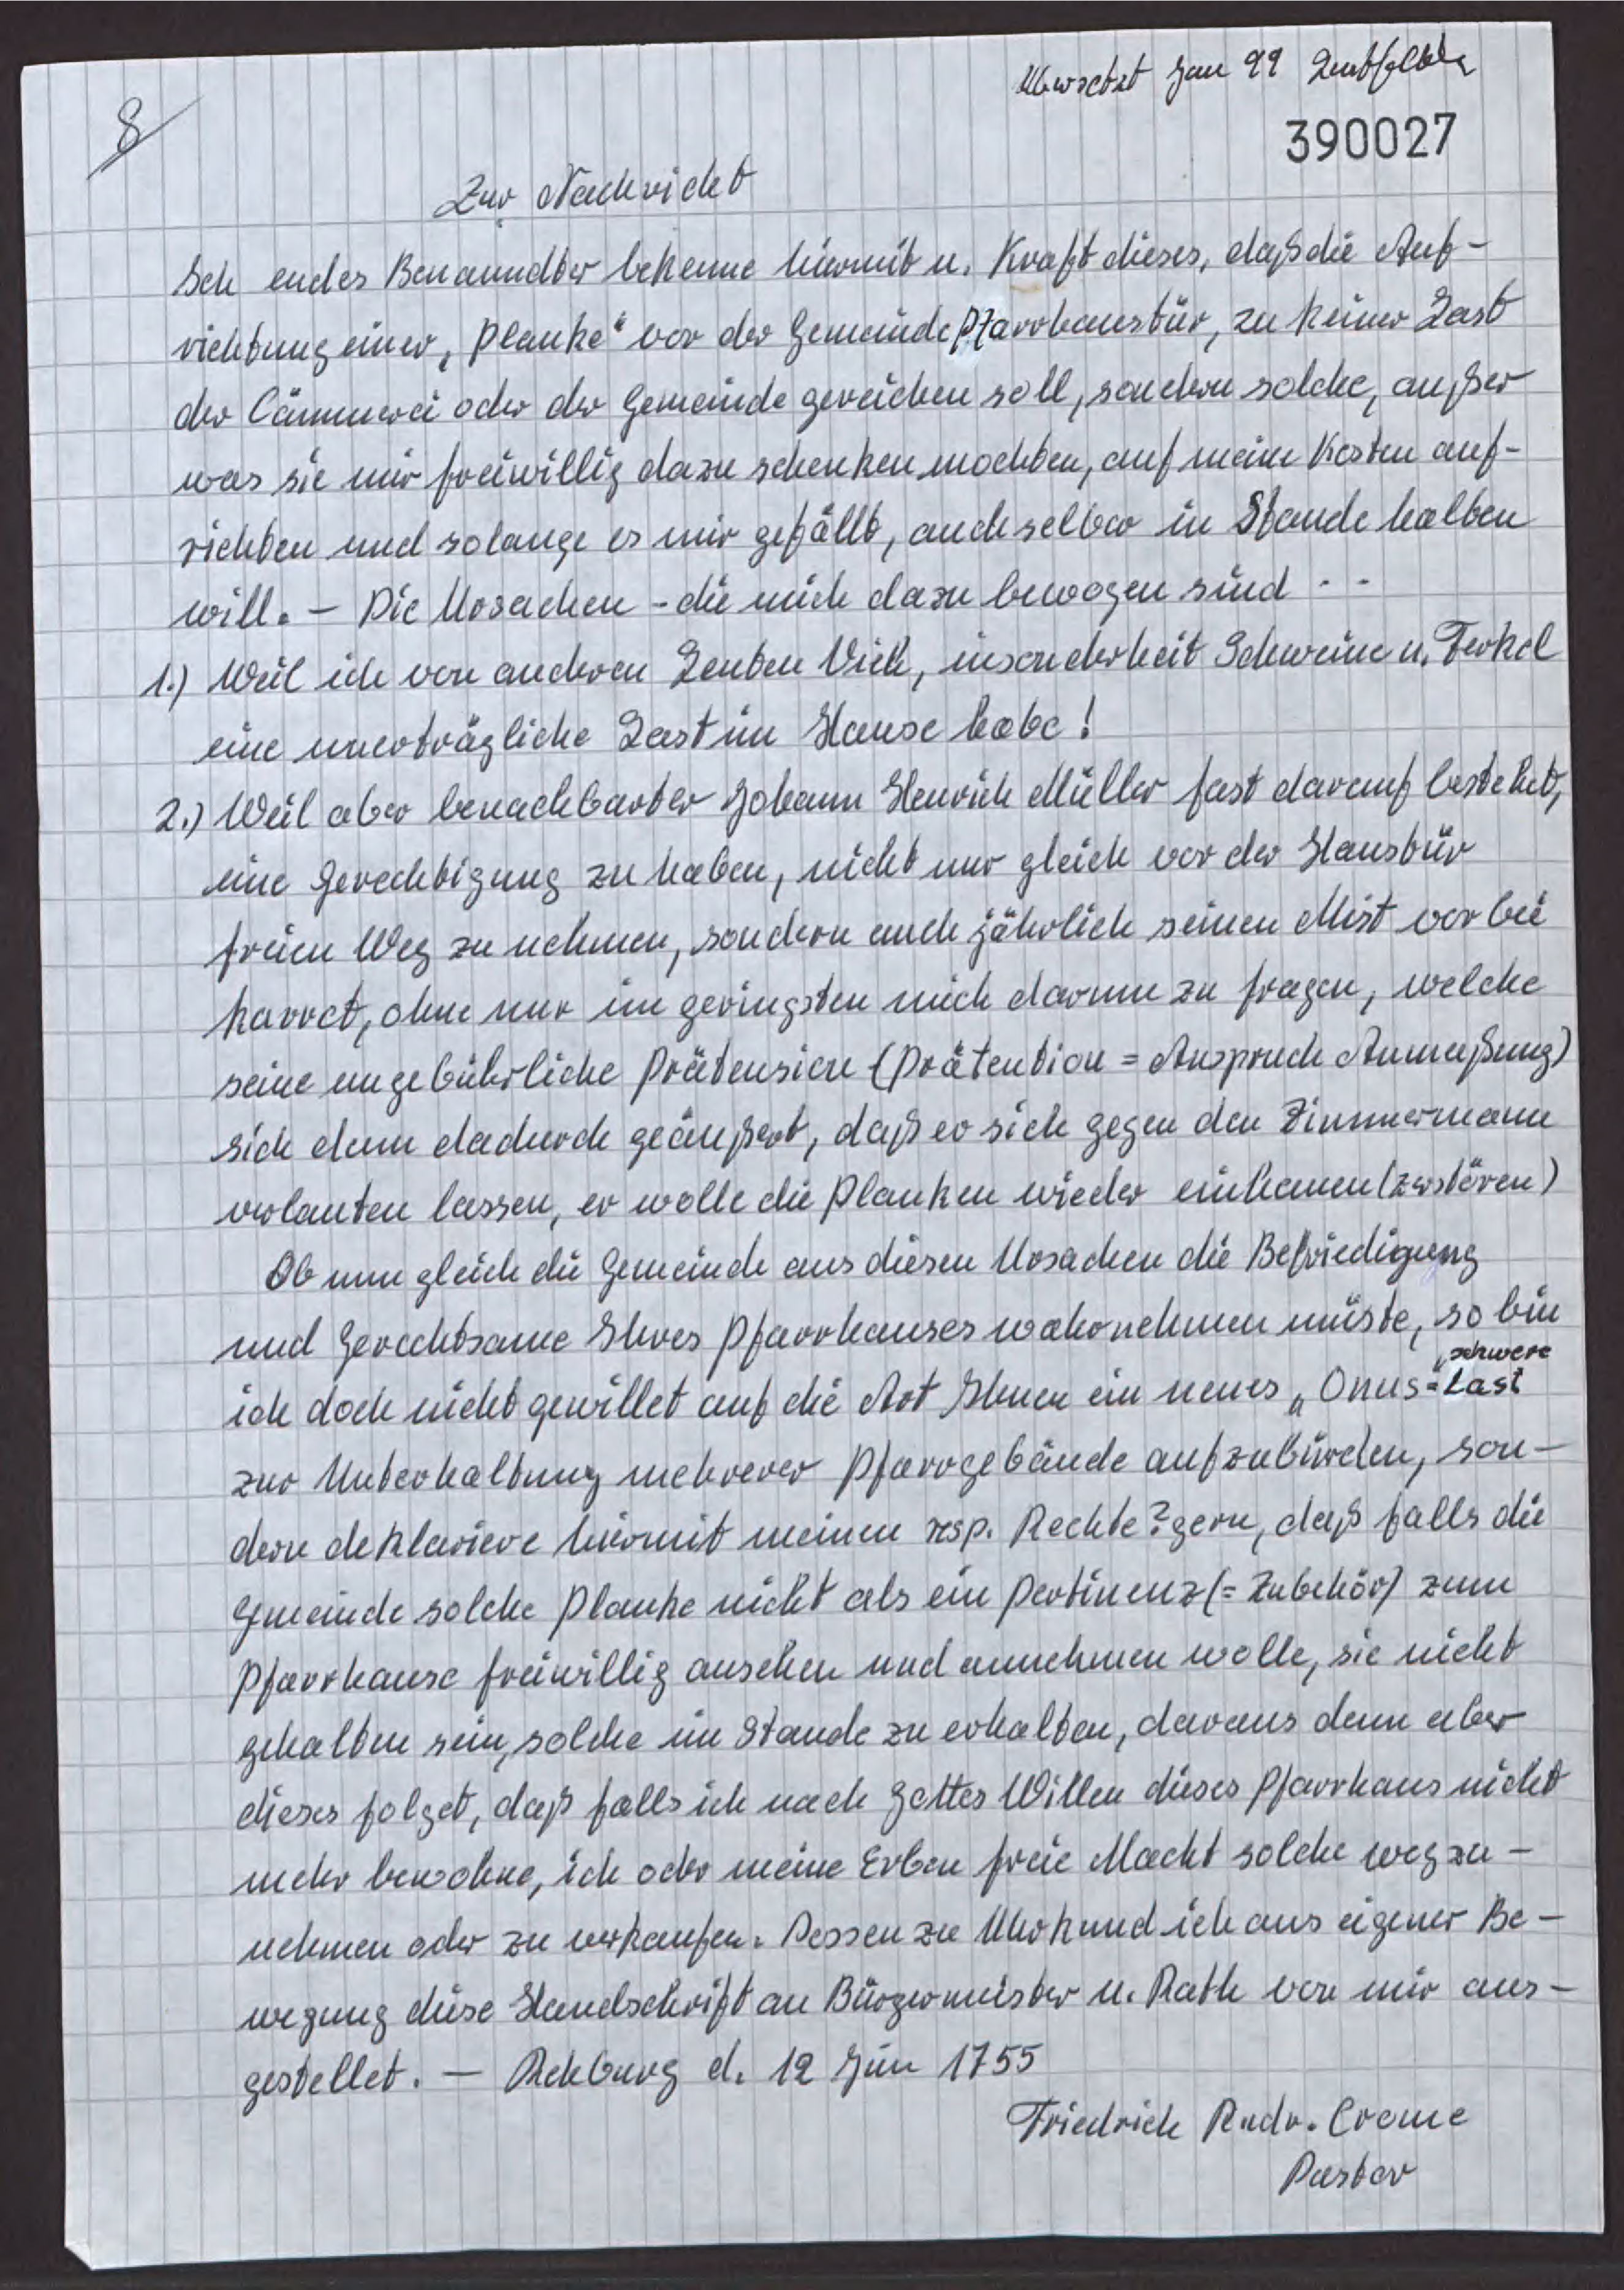 Übersetzt Jan 99
390027
8
Zur Nachricht
Ich endes Benanndter bekenne hiermit u. Kraft dieses, daß die Auf-
richtung einer „Planke“ vor der Gemeinde Pfarrhaustür, zu keiner Last
der Cämmerei oder der Gemeinde gereichen soll, sondern solche, außer
was sie mir freiwillig dazu schenken mochten, auf meine Kosten auf-
richten und solange es mir gefällt, auch selber in Stande halten
will. – Die Ursachen - die mich dazu bewogen sind - -
1.) Weil ich von anderen Leuten Vieh, insonderheit Schweine u. Ferkel
eine unerträgliche Last im Hause habe!
2.) Weil aber benachbarter Johann Henrich Müller fast darauf bestehet,
eine Gerechtigung zu haben, nicht nur gleich vor der Haustür
freien Weg zu nehmen, sondern auch jährlich seinen Mist vorbei
karret, ohne nur im geringsten mich darum zu fragen, welche
seine ungebührliche Prätension (Prätention = Anspruch Anmaßung)
sich denn dadurch geäußert, daß er sich gegen den Zimmermann
verlauten lassen, er wolle die Planken wieder einhauen (zerstören)
Ob nun gleich die Gemeinde aus diesen Ursachen die Befriedigung
und Gerechtsame Ihres Pfarrhauses wahrnehmen müste, so bin
„schwere
ich doch nicht gewillet auf die Art Ihnen ein neues „Onus=Last
zur Unterhaltung mehrerer Pfarrgebäude aufzubürden, son-
dern deklariere hiermit meinen resp. Rechte?gern, daß falls die
Gmeinde solche Planke nicht als ein Pertinenz (= Zubehör) zum
Pfarrhause freiwillig ansehen und annehmen wolle, sie nicht
gehalten sein, solche im Stande zu erhalten, daraus denn aber
dieses folget, daß falls ich nach Gottes Willen dieses Pfarrhaus nicht
mehr bewohne, ich oder meine Erben freie Macht solche wegzu-
nehmen oder zu verkaufen. Dessen zu Uhrkund ich aus eigener Be-
wegung diese Handschrift an Bürgermeister u. Rath von mir aus-
gestellet. — Rehburg d. 12 Jun 1755
Friedrich Rudr. Crome
Pastor